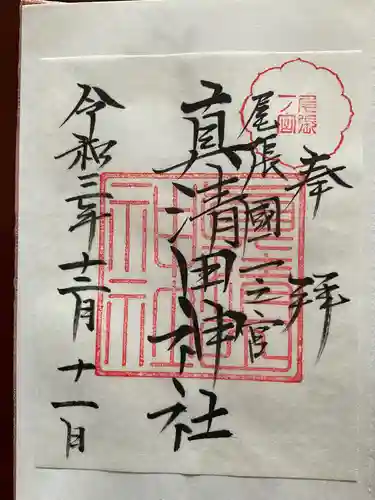 奉拝
尾張國一之宮
真清田神社
令和三年十二月十一日
尾張
一宮